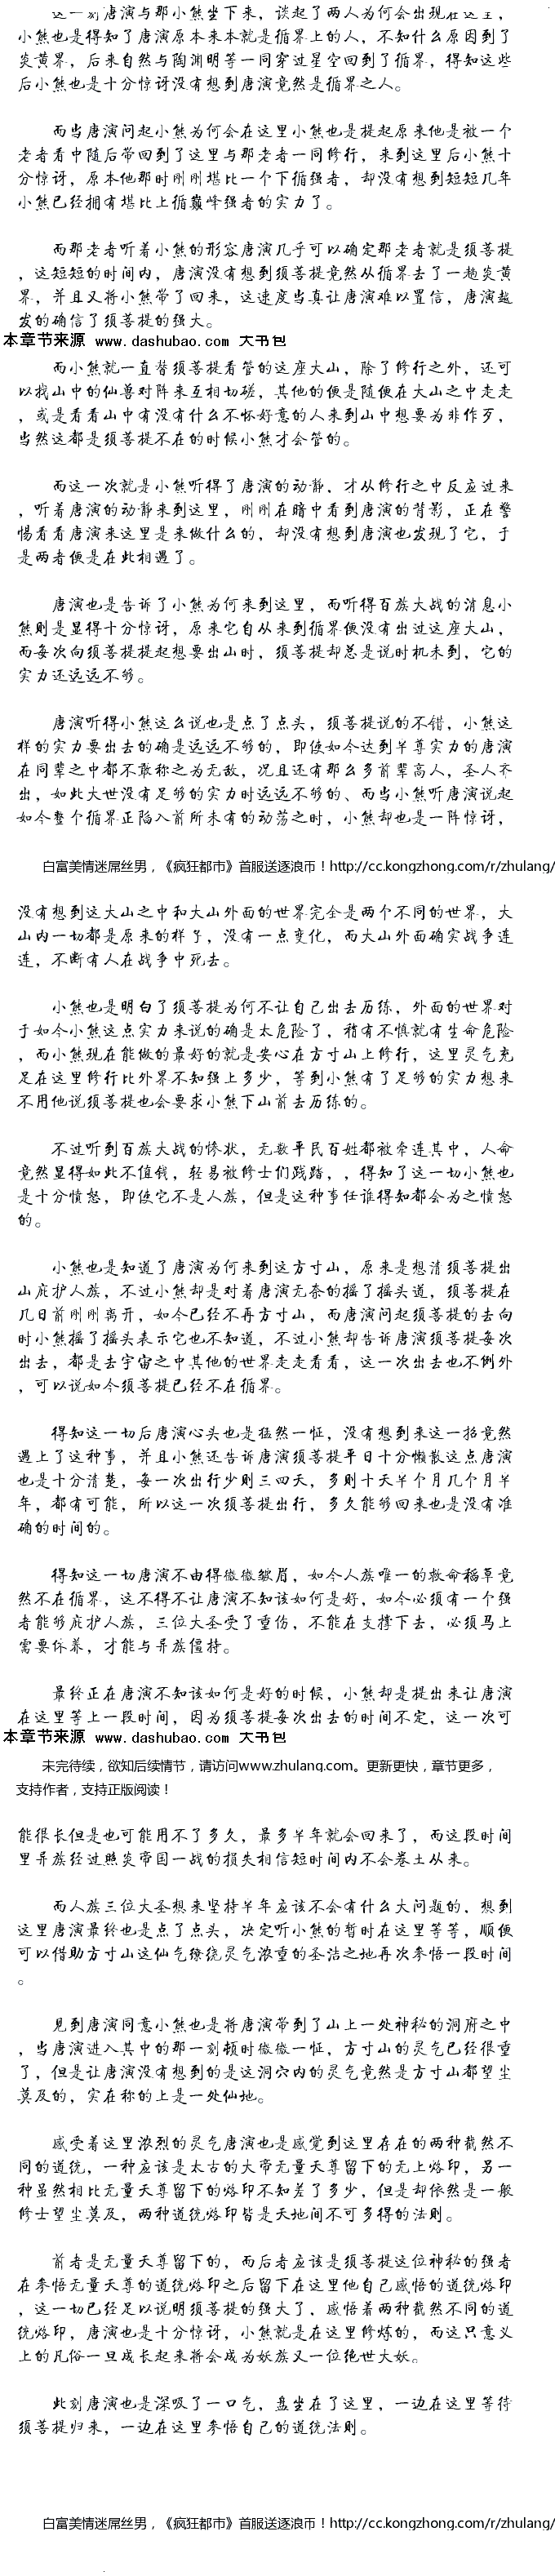 这一刻唐演与那小熊坐下来，谈起了两人为何会出现在这里，
小熊也是得知了唐演原本来本就是循界上的人，不知什么原因到了
炎黄界，后来自然与陶渊明等一同穿过星空回到了循界，得知这些
后小熊也是十分惊讶没有想到唐演竟然是循界之人。
而当唐演问起小熊为何会在这里小熊也是提起原来他是被一个
老者看中随后带回到了这里与那老者一同修行，来到这里后小熊十
分惊讶，原本他那时刚刚堪比一个下循强者，却没有想到短短几年
小熊已经拥有堪比上循巅峰强者的实力了。
而那老者听着小熊的形容唐演几乎可以确定那老者就是须菩提
，这短短的时间内，唐演没有想到须菩提竟然从循界去了一趟炎黄
界，并且又将小熊带了回来，这速度当真让唐演难以置信，唐演越
发的确信了须菩提的强大。
本章节来源 www.dashubao.com 大书包
而小熊就一直替须菩提看管的这座大山，除了修行之外，还可
以找山中的仙兽对阵来互相切磋，其他的便是随便在大山之中走走
，或是看看山中有没有什么不怀好意的人来到山中想要为非作歹，
当然这都是须菩提不在的时候小熊才会管的。
而这一次就是小熊听得了唐演的动静，才从修行之中反应过来
，听着唐演的动静来到这里，刚刚在暗中看到唐演的背影，正在警
惕看看唐演来这里是来做什么的，却没有想到唐演也发现了它，于
是两者便是在此相遇了。
唐演也是告诉了小熊为何来到这里，而听得百族大战的消息小
熊则是显得十分惊讶，原来它自从来到循界便没有出过这座大山，
而每次向须菩提提起想要出山时，须菩提却总是说时机未到，它的
实力还远远不够。
唐演听得小熊这么说也是点了点头，须菩提说的不错，小熊这
样的实力要出去的确是远远不够的，即使如今达到半尊实力的唐演
在同辈之中都不敢称之为无敌，况且还有那么多前辈高人，圣人齐
出，如此大世没有足够的实力时远远不够的、而当小熊听唐演说起
如今整个循界正陷入前所未有的动荡之时，小熊却也是一阵惊讶，
白富美情迷屌丝男，《疯狂都市》首服送逐浪币！http://cc.kongzhong.com/r/zhulang/
没有想到这大山之中和大山外面的世界完全是两个不同的世界，大
山内一切都是原来的样子，没有一点变化，而大山外面确实战争连
连，不断有人在战争中死去。
小熊也是明白了须菩提为何不让自己出去历练，外面的世界对
于如今小熊这点实力来说的确是太危险了，稍有不慎就有生命危险
，而小熊现在能做的最好的就是安心在方寸山上修行，这里灵气充
足在这里修行比外界不知强上多少，等到小熊有了足够的实力想来
不用他说须菩提也会要求小熊下山前去历练的。
不过听到百族大战的惨状，无数平民百姓都被牵连其中，人命
竟然显得如此不值钱，轻易被修士们践踏，，得知了这一切小熊也
是十分愤怒，即使它不是人族，但是这种事任谁得知都会为之愤怒
的。
小熊也是知道了唐演为何来到这方寸山，原来是想请须菩提出
山庇护人族，不过小熊却是对着唐演无奈的摇了摇头道，须菩提在
几日前刚刚离开，如今已经不再方寸山，而唐演问起须菩提的去向
时小熊摇了摇头表示它也不知道，不过小熊却告诉唐演须菩提每次
出去，都是去宇宙之中其他的世界走走看看，这一次出去也不例外
，可以说如今须菩提已经不在循界。
得知这一切后唐演心头也是猛然一怔，没有想到来这一招竟然
遇上了这种事，并且小熊还告诉唐演须菩提平日十分懒散这点唐演
也是十分清楚，每一次出行少则三四天，多则十天半个月几个月半
年，都有可能，所以这一次须菩提出行，多久能够回来也是没有准
确的时间的。
得知这一切唐演不由得微微皱眉，如今人族唯一的救命稻草竟
然不在循界，这不得不让唐演不知该如何是好，如今必须有一个强
者能够庇护人族，三位大圣受了重伤，不能在支撑下去，必须马上
需要休养，才能与异族僵持。
最终正在唐演不知该如何是好的时候，小熊却是提出来让唐演
在这里等上一段时间，因为须菩提每次出去的时间不定，这一次可
本章节来源 www.dashubao.com 大书包
未完待续，欲知后续情节，请访问www.zhulang.com。更新更快，章节更多，
支持作者，支持正版阅读！
能很长但是也可能用不了多久，最多半年就会回来了，而这段时间
里异族经过照炎帝国一战的损失相信短时间内不会卷土从来。
而人族三位大圣想来坚持半年应该不会有什么大问题的，想到
这里唐演最终也是点了点头，决定听小熊的暂时在这里等等，顺便
可以借助方寸山这仙气缭绕灵气浓重的圣洁之地再次参悟一段时间
。
见到唐演同意小熊也是将唐演带到了山上一处神秘的洞府之中
，当唐演进入其中的那一刻顿时微微一怔，方寸山的灵气已经很重
了，但是让唐演没有想到的是这洞穴内的灵气竟然是方寸山都望尘
莫及的，实在称的上是一处仙地。
感受着这里浓烈的灵气唐演也是感觉到这里存在的两种截然不
同的道统，一种应该是太古的大帝无量天尊留下的无上烙印，另一
种虽然相比无量天尊留下的烙印不知差了多少，但是却依然是一般
修士望尘莫及，两种道统烙印皆是天地间不可多得的法则。
前者是无量天尊留下的，而后者应该是须菩提这位神秘的强者
在参悟无量天尊的道统烙印之后留下在这里他自己感悟的道统烙印
，这一切已经足以说明须菩提的强大了，感悟着两种截然不同的道
统烙印，唐演也是十分惊讶，小熊就是在这里修炼的，而这只意义
上的凡俗一旦成长起来将会成为妖族又一位绝世大妖。
此刻唐演也是深吸了一口气，盘坐在了这里，一边在这里等待
须菩提归来，一边在这里参悟自己的道统法则。
白富美情迷屌丝男，《疯狂都市》首服送逐浪币！http://cc.kongzhong.com/r/zhulang/